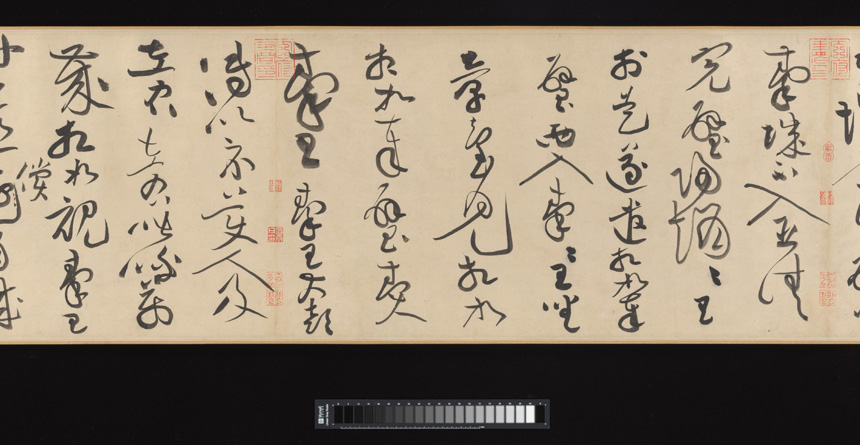 秦城不入臣請
完璧歸趙〻王
於是遂遣相如奉
璧西入秦〻王坐
章臺見相如
相如奉璧奏
秦王秦王大喜
傳以示美人及
左右左右皆呼萬
歲相如視秦王
償